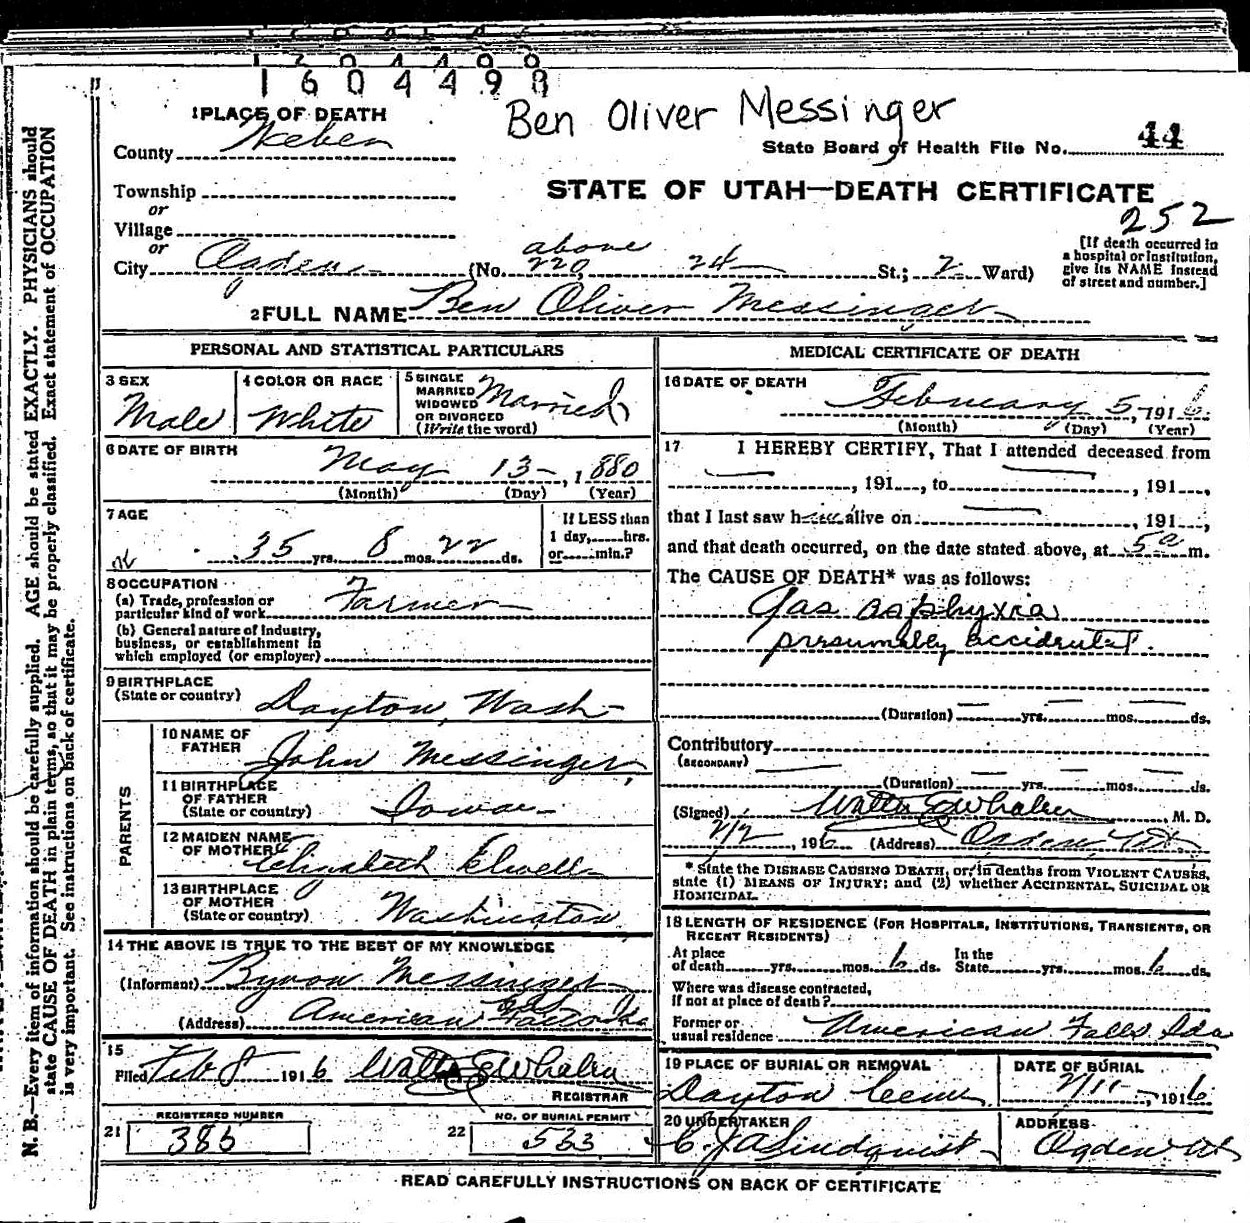 1604498
Ben Oliver Messinger
1 PLACE OF DEATH
County Weber
State Board of Health File No. 44
Township
or
Village
or
STATE OF UTAH—DEATH CERTIFICATE
252
City Ogden (No. 220 above 24 St.; 2 Ward)
[If death occurred in
a hospital or institution,
give its NAME instead
of street and number.]
2 FULL NAME Ben Oliver Messinger
PERSONAL AND STATISTICAL PARTICULARS
3 SEX
Male
4 COLOR OR RACE
White
5 SINGLE
MARRIED
WIDOWED
OR DIVORCED
(Write the word)
Married
6 DATE OF BIRTH
May 13, 1880
(Month) (Day) (Year)
7 AGE
35 yrs. 8 mos. 22 ds.
If LESS than
1 day, hrs.
or min.?
8 OCCUPATION
(a) Trade, profession or
particular kind of work Farmer
(b) General nature of industry,
business, or establishment in
which employed (or employer)
9 BIRTHPLACE
(State or country) Dayton, Wash
PARENTS
10 NAME OF
FATHER John Messinger
11 BIRTHPLACE
OF FATHER
(State or country) Iowa
12 MAIDEN NAME
OF MOTHER Elizabeth Elwell
13 BIRTHPLACE
OF MOTHER
(State or country) Washington
14 THE ABOVE IS TRUE TO THE BEST OF MY KNOWLEDGE
(Informant) Byron Messinger
(Address) American Falls Ida
15
Filed Feb 8 1916 Walter E Whalen
REGISTRAR
REGISTERED NUMBER
21 385
NO. OF BURIAL PERMIT
22 533
MEDICAL CERTIFICATE OF DEATH
16 DATE OF DEATH
February 5, 1916
(Month) (Day) (Year)
17 I HEREBY CERTIFY, That I attended deceased from
, 191 , to , 191 ,
that I last saw h alive on , 191 ,
and that death occurred, on the date stated above, at 5 a m.
The CAUSE OF DEATH* was as follows:
Gas asphyxia
presumably accidental.
(Duration) yrs. mos. ds.
Contributory
(SECONDARY)
(Duration) yrs. mos. ds.
(Signed) Walter E Whalen, M. D.
, 1916 (Address) Ogden, Ut
* State the DISEASE CAUSING DEATH, or, in deaths from VIOLENT CAUSES,
state (1) MEANS OF INJURY; and (2) whether ACCIDENTAL, SUICIDAL OR
HOMICIDAL.
18 LENGTH OF RESIDENCE (FOR HOSPITALS, INSTITUTIONS, TRANSIENTS, OR
RECENT RESIDENTS)
At place
of death yrs. mos. 6 ds.
In the
State yrs. mos. 6 ds.
Where was disease contracted,
if not at place of death?
Former or
usual residence American Falls, Ida
19 PLACE OF BURIAL OR REMOVAL
Dayton Cem.
DATE OF BURIAL
2/11, 1916
20 UNDERTAKER
C. J. A. Lindquist
ADDRESS
Ogden Ut
READ CAREFULLY INSTRUCTIONS ON BACK OF CERTIFICATE
N. B.—Every item of information should be carefully supplied. AGE should be stated EXACTLY. PHYSICIANS should
state CAUSE OF DEATH in plain terms, so that it may be properly classified. Exact statement of OCCUPATION
is very important. See instructions on back of certificate.